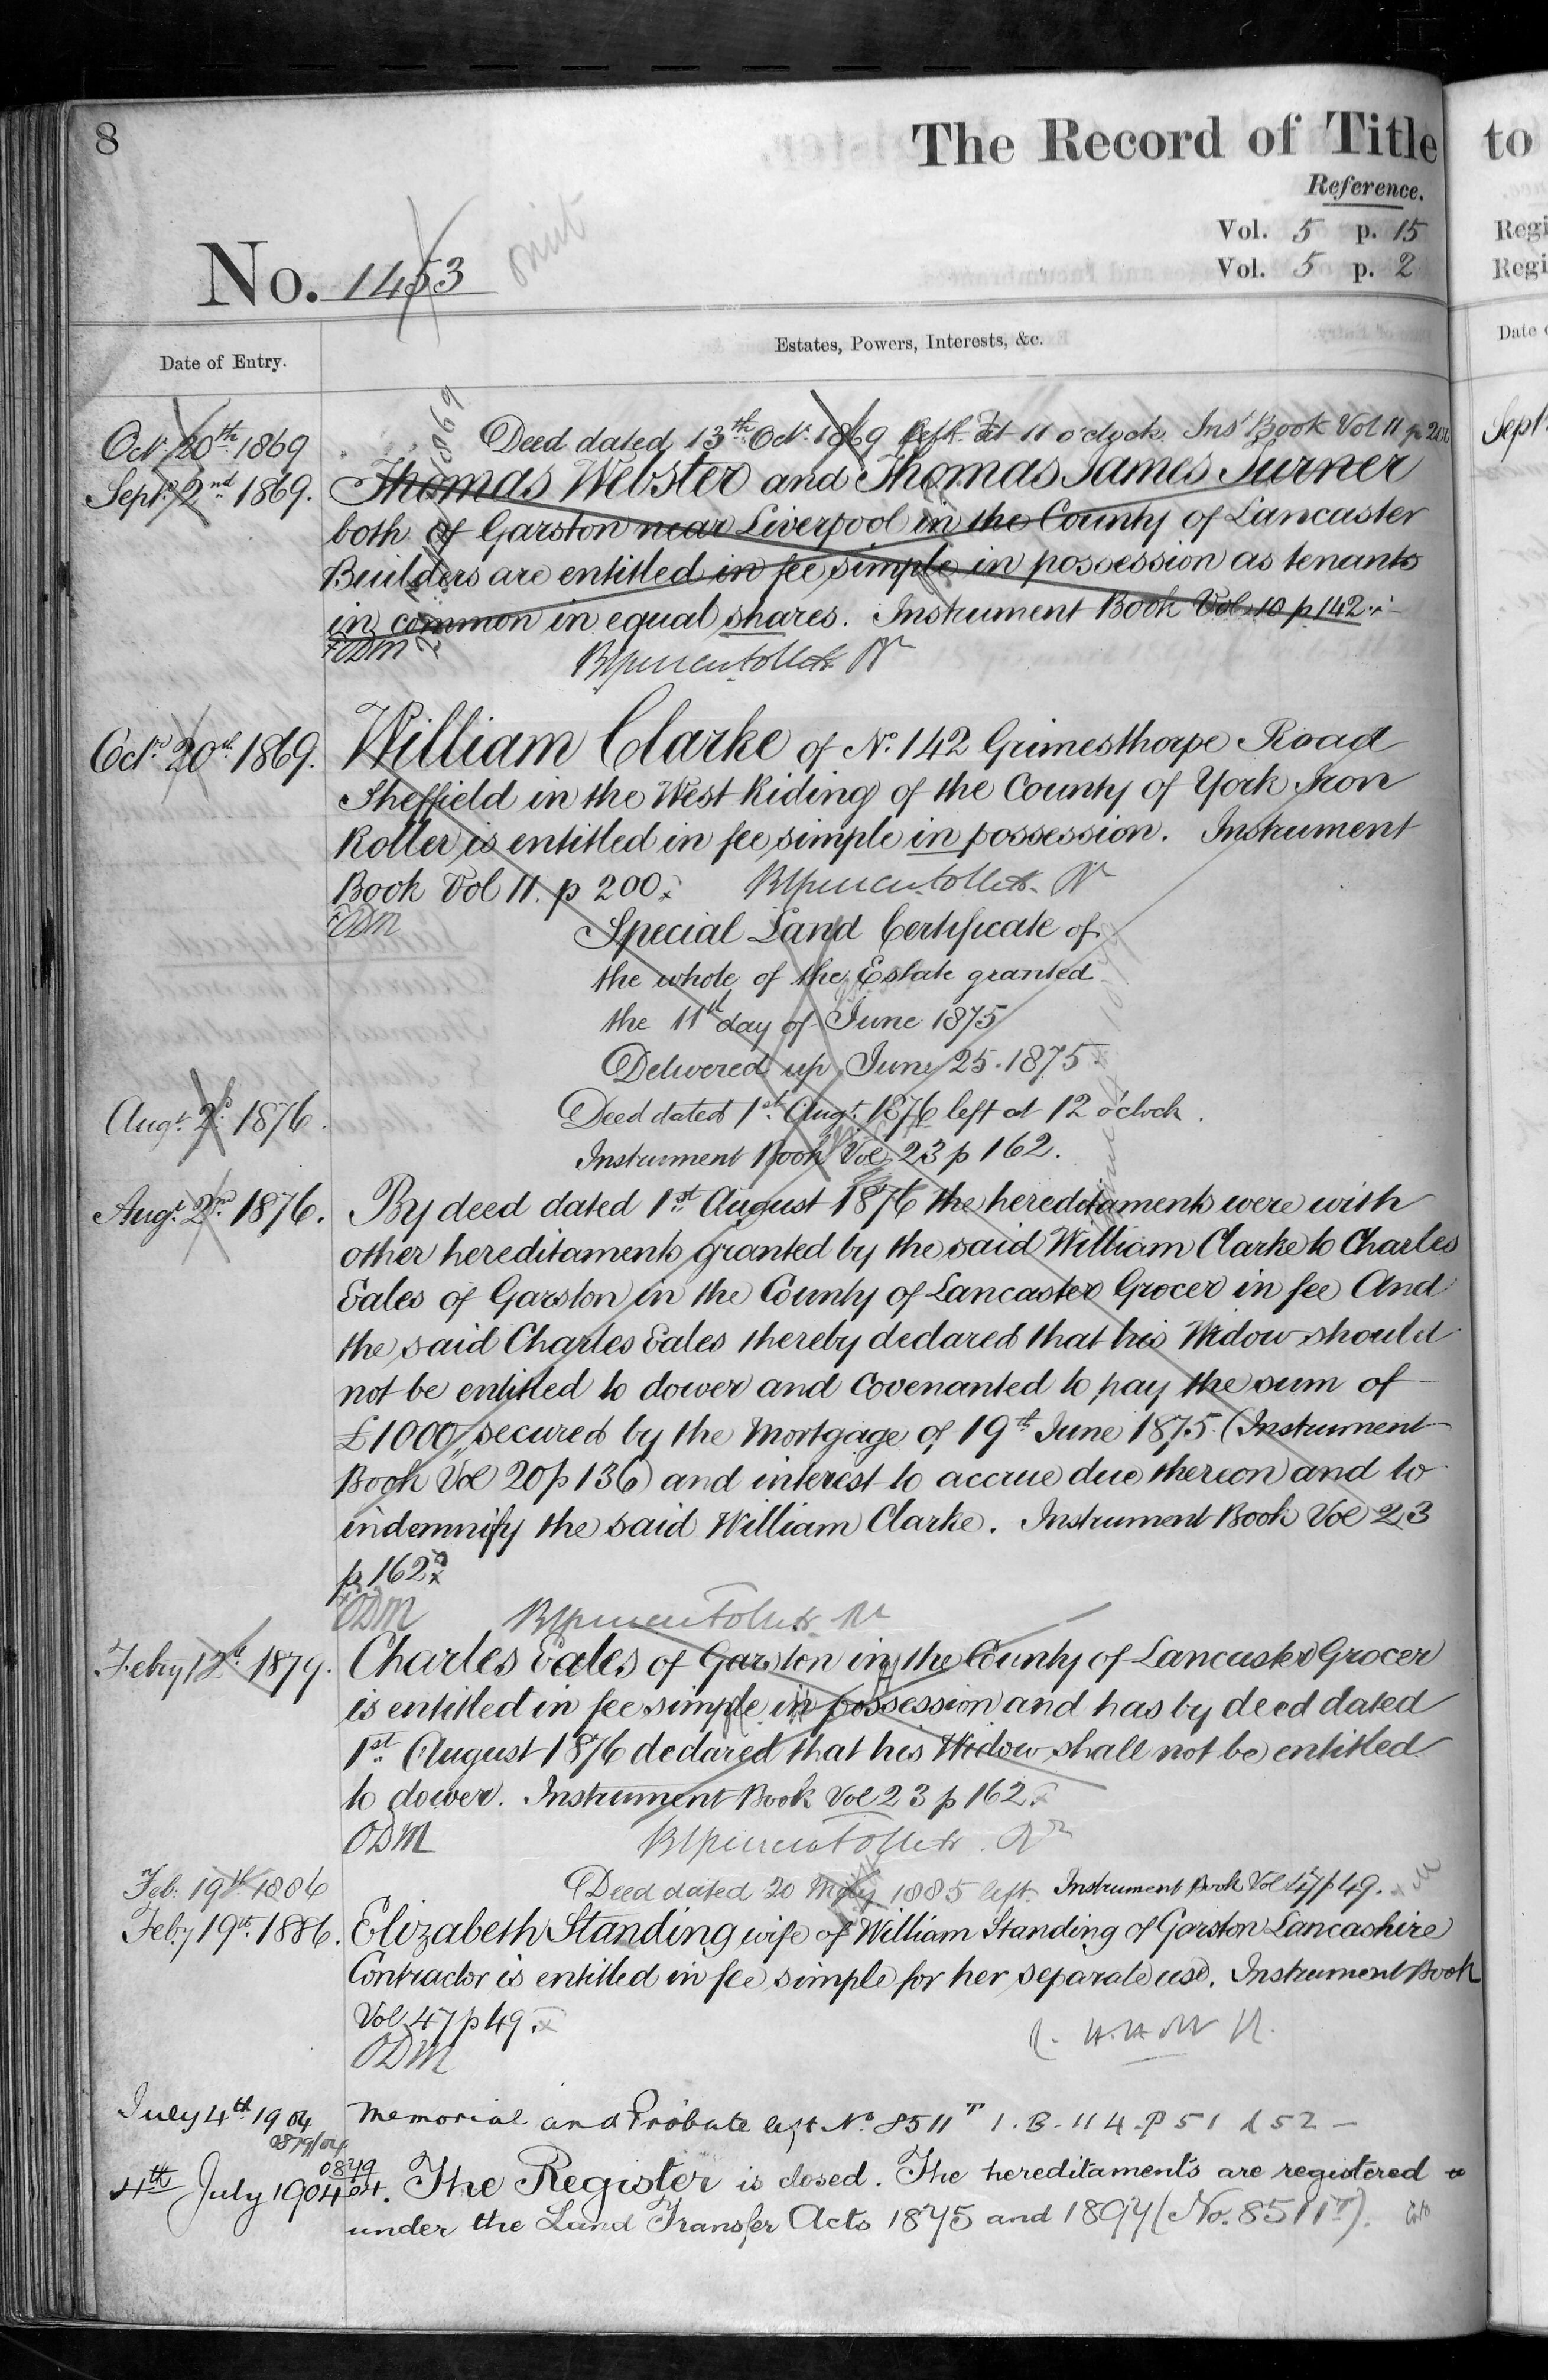 8
The Record of Title
to
Reference.
Vol. 5 p. 15
Regi
Vol. 5 p. 2
Regi
No. 1453
omit
Date of Entry.
Estates, Powers, Interests, &c.
Date
Octr. 20th. 1869
Deed dated 13th Octr. 1869 left at 11 o'clock. Inst Book Vol 11 p 200
Sept.
Septr. 2nd 1869.
Thomas Webster and Thomas James Turner
both of Garston near Liverpool in the County of Lancaster
Builders are entitled in fee simple in possession as tenants
in common in equal shares. Instrument Book Vol. 10 p 142.
ODM
Octr. 20th. 1869.
William Clarke of No. 142 Grimesthorpe Road
Sheffield in the West Riding of the County of York Iron
Roller is entitled in fee simple in possession. Instrument
Book Vol 11. p 200.
ODM
Special Land Certificate of
the whole of the Estate granted
the 11th day of June 1875
Delivered up June 25. 1875
Augt. 2d. 1876.
Deed dated 1st. Augt. 1876 left at 12 o'clock.
Instrument Book Vol 23 p 162.
Augt. 2nd. 1876.
By deed dated 1st. August 1876 the hereditaments were with
other hereditaments granted by the said William Clarke to Charles
Eales of Garston in the County of Lancaster Grocer in fee And
the said Charles Eales thereby declared that his Widow should
not be entitled to dower and covenanted to pay the sum of
£1000 secured by the Mortgage of 19th June 1875 (Instrument
Book Vol 20 p 136) and interest to accrue due thereon and to
indemnify the said William Clarke. Instrument Book Vol 23
p 162.
ODM
Febry 12th 1879.
Charles Eales of Garston in the County of Lancaster Grocer
is entitled in fee simple in possession and has by deed dated
1st. August 1876 declared that his Widow shall not be entitled
to dower. Instrument Book Vol 23 p 162.
ODM
Feb: 19th. 1886
Deed dated 20 May 1885 left. Instrument Book Vol 47 p 49.
Feby 19th. 1886.
Elizabeth Standing wife of William Standing of Garston Lancashire
Contractor is entitled in fee simple for her separate use. Instrument Book
Vol 47 p 49.
ODM
July 4th. 1904
0879/04
Memorial and Probate left No. 8511 I. B. 114. P 51 & 52 –
0879/04
4th July 1904.
The Register is closed. The hereditaments are registered
under the Land Transfer Acts 1875 and 1897 (No. 8511).